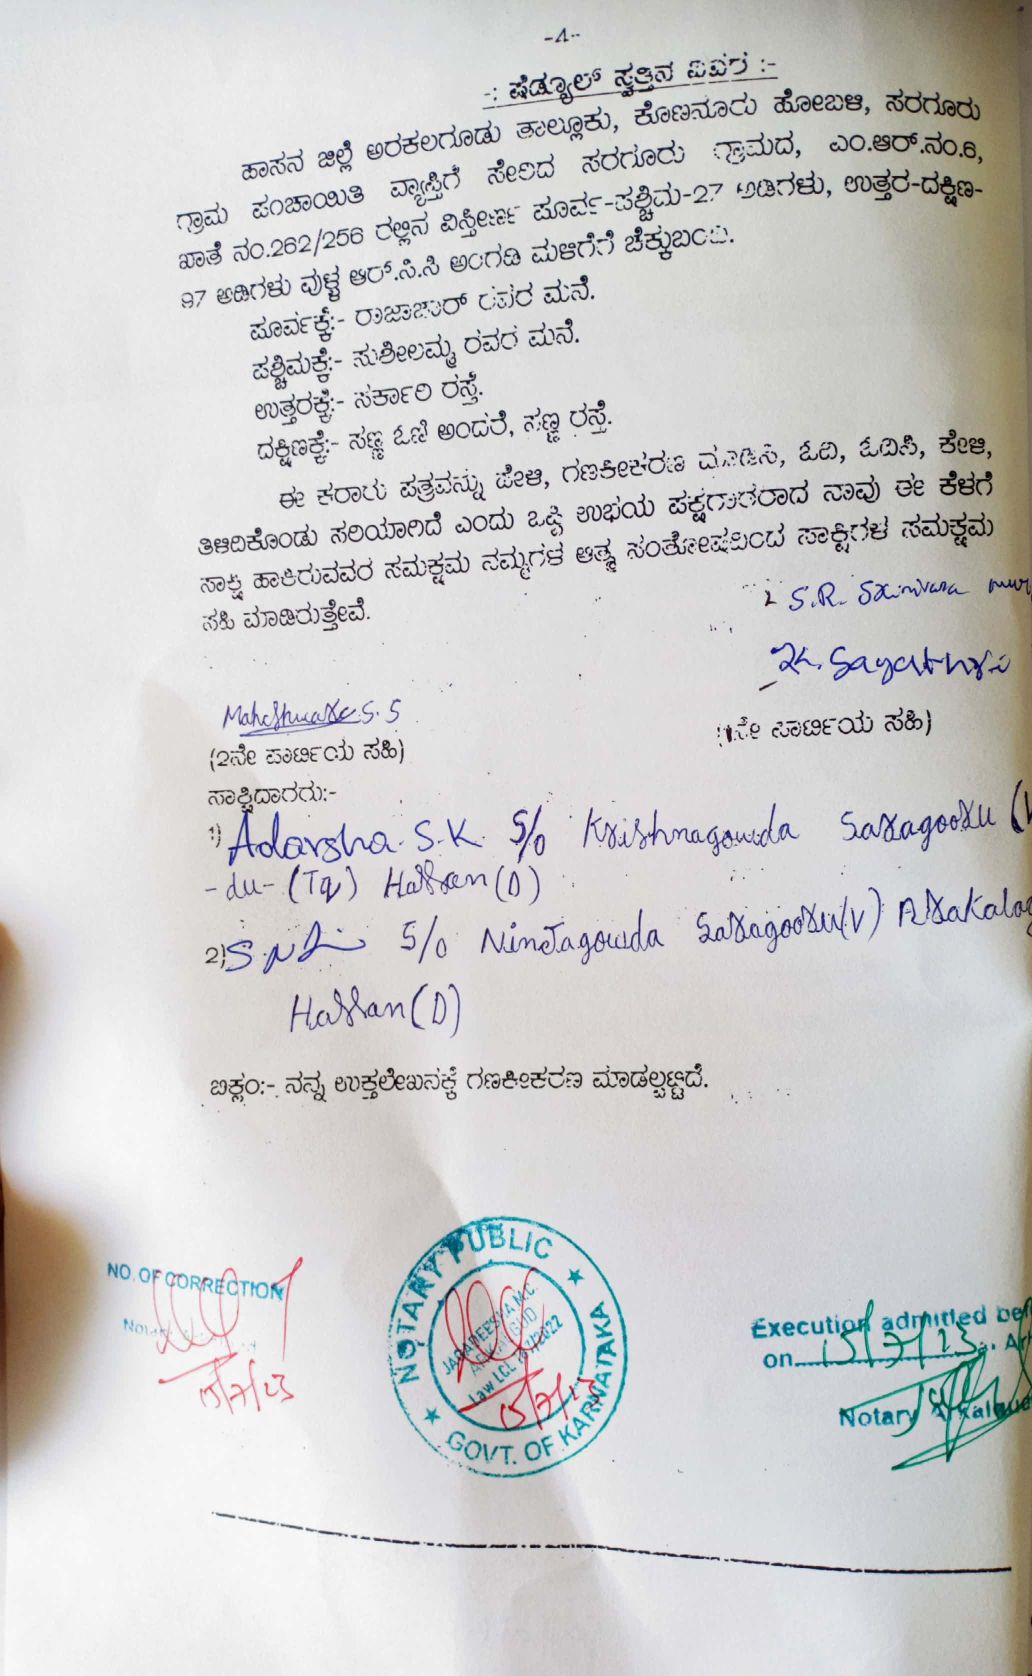 -4-
-: ಷೆಡ್ಯೂಲ್ ಸ್ವತ್ತಿನ ವಿವರ :-
ಹಾಸನ ಜಿಲ್ಲೆ ಅರಕಲಗೂಡು ತಾಲ್ಲೂಕು, ಕೊಣನೂರು ಹೋಬಳಿ, ಸರಗೂರು
ಗ್ರಾಮ ಪಂಚಾಯಿತಿ ವ್ಯಾಪ್ತಿಗೆ ಸೇರಿದ ಸರಗೂರು ಗ್ರಾಮದ, ಎಂ.ಆರ್.ನಂ.6,
ಖಾತೆ ನಂ.262/256 ರಲ್ಲಿನ ವಿಸ್ತೀರ್ಣ ಪೂರ್ವ-ಪಶ್ಚಿಮ-27 ಅಡಿಗಳು, ಉತ್ತರ-ದಕ್ಷಿಣ-
97 ಅಡಿಗಳು ವುಳ್ಳ ಆರ್.ಸಿ.ಸಿ ಅಂಗಡಿ ಮಳಿಗೆಗೆ ಚೆಕ್ಕುಬಂದಿ.
ಪೂರ್ವಕ್ಕೆ:- ರಾಜಾಚಾರ್ ರವರ ಮನೆ.
ಪಶ್ಚಿಮಕ್ಕೆ:- ಸುಶೀಲಮ್ಮ ರವರ ಮನೆ.
ಉತ್ತರಕ್ಕೆ:- ಸರ್ಕಾರಿ ರಸ್ತೆ.
ದಕ್ಷಿಣಕ್ಕೆ:- ಸಣ್ಣ ಓಣಿ ಅಂದರೆ, ಸಣ್ಣ ರಸ್ತೆ.
ಈ ಕರಾರು ಪತ್ರವನ್ನು ಹೇಳಿ, ಗಣಕೀಕರಣ ಮಾಡಿಸಿ, ಓದಿ, ಓದಿಸಿ, ಕೇಳಿ,
ತಿಳಿದಿಕೊಂಡು ಸರಿಯಾಗಿದೆ ಎಂದು ಒಪ್ಪಿ ಉಭಯ ಪಕ್ಷಗಾರರಾದ ನಾವು ಈ ಕೆಳಗೆ
ಸಾಕ್ಷಿ ಹಾಕಿರುವವರ ಸಮಕ್ಷಮ ನಮ್ಮಗಳ ಆತ್ಮ ಸಂತೋಷದಿಂದ ಸಾಕ್ಷಿಗಳ ಸಮಕ್ಷಮ
ಸಹಿ ಮಾಡಿರುತ್ತೇವೆ.
S.R.
Maheshwara S.S
(2ನೇ ಪಾರ್ಟಿಯ ಸಹಿ)
(1ನೇ ಪಾರ್ಟಿಯ ಸಹಿ)
ಸಾಕ್ಷಿದಾರರು:-
1) Adarsha. S.K. S/o Krishnagowda Saragooru (V
-du- (Tq) Hassan (D)
2) S/o Ningagowda Saragooru(V) Arakalag
Hassan (D)
ಬಿಕ್ಲಂ:- ನನ್ನ ಉಕ್ತಲೇಖನಕ್ಕೆ ಗಣಕೀಕರಣ ಮಾಡಲ್ಪಟ್ಟಿದೆ.
NO. OF CORRECTION
15/7/23
NOTARY PUBLIC
JAGADEESHA M.C.
GOVT. OF KARNATAKA
15/7/23
Execution admitted bef
on 15/7/23
Notary Arkalgu